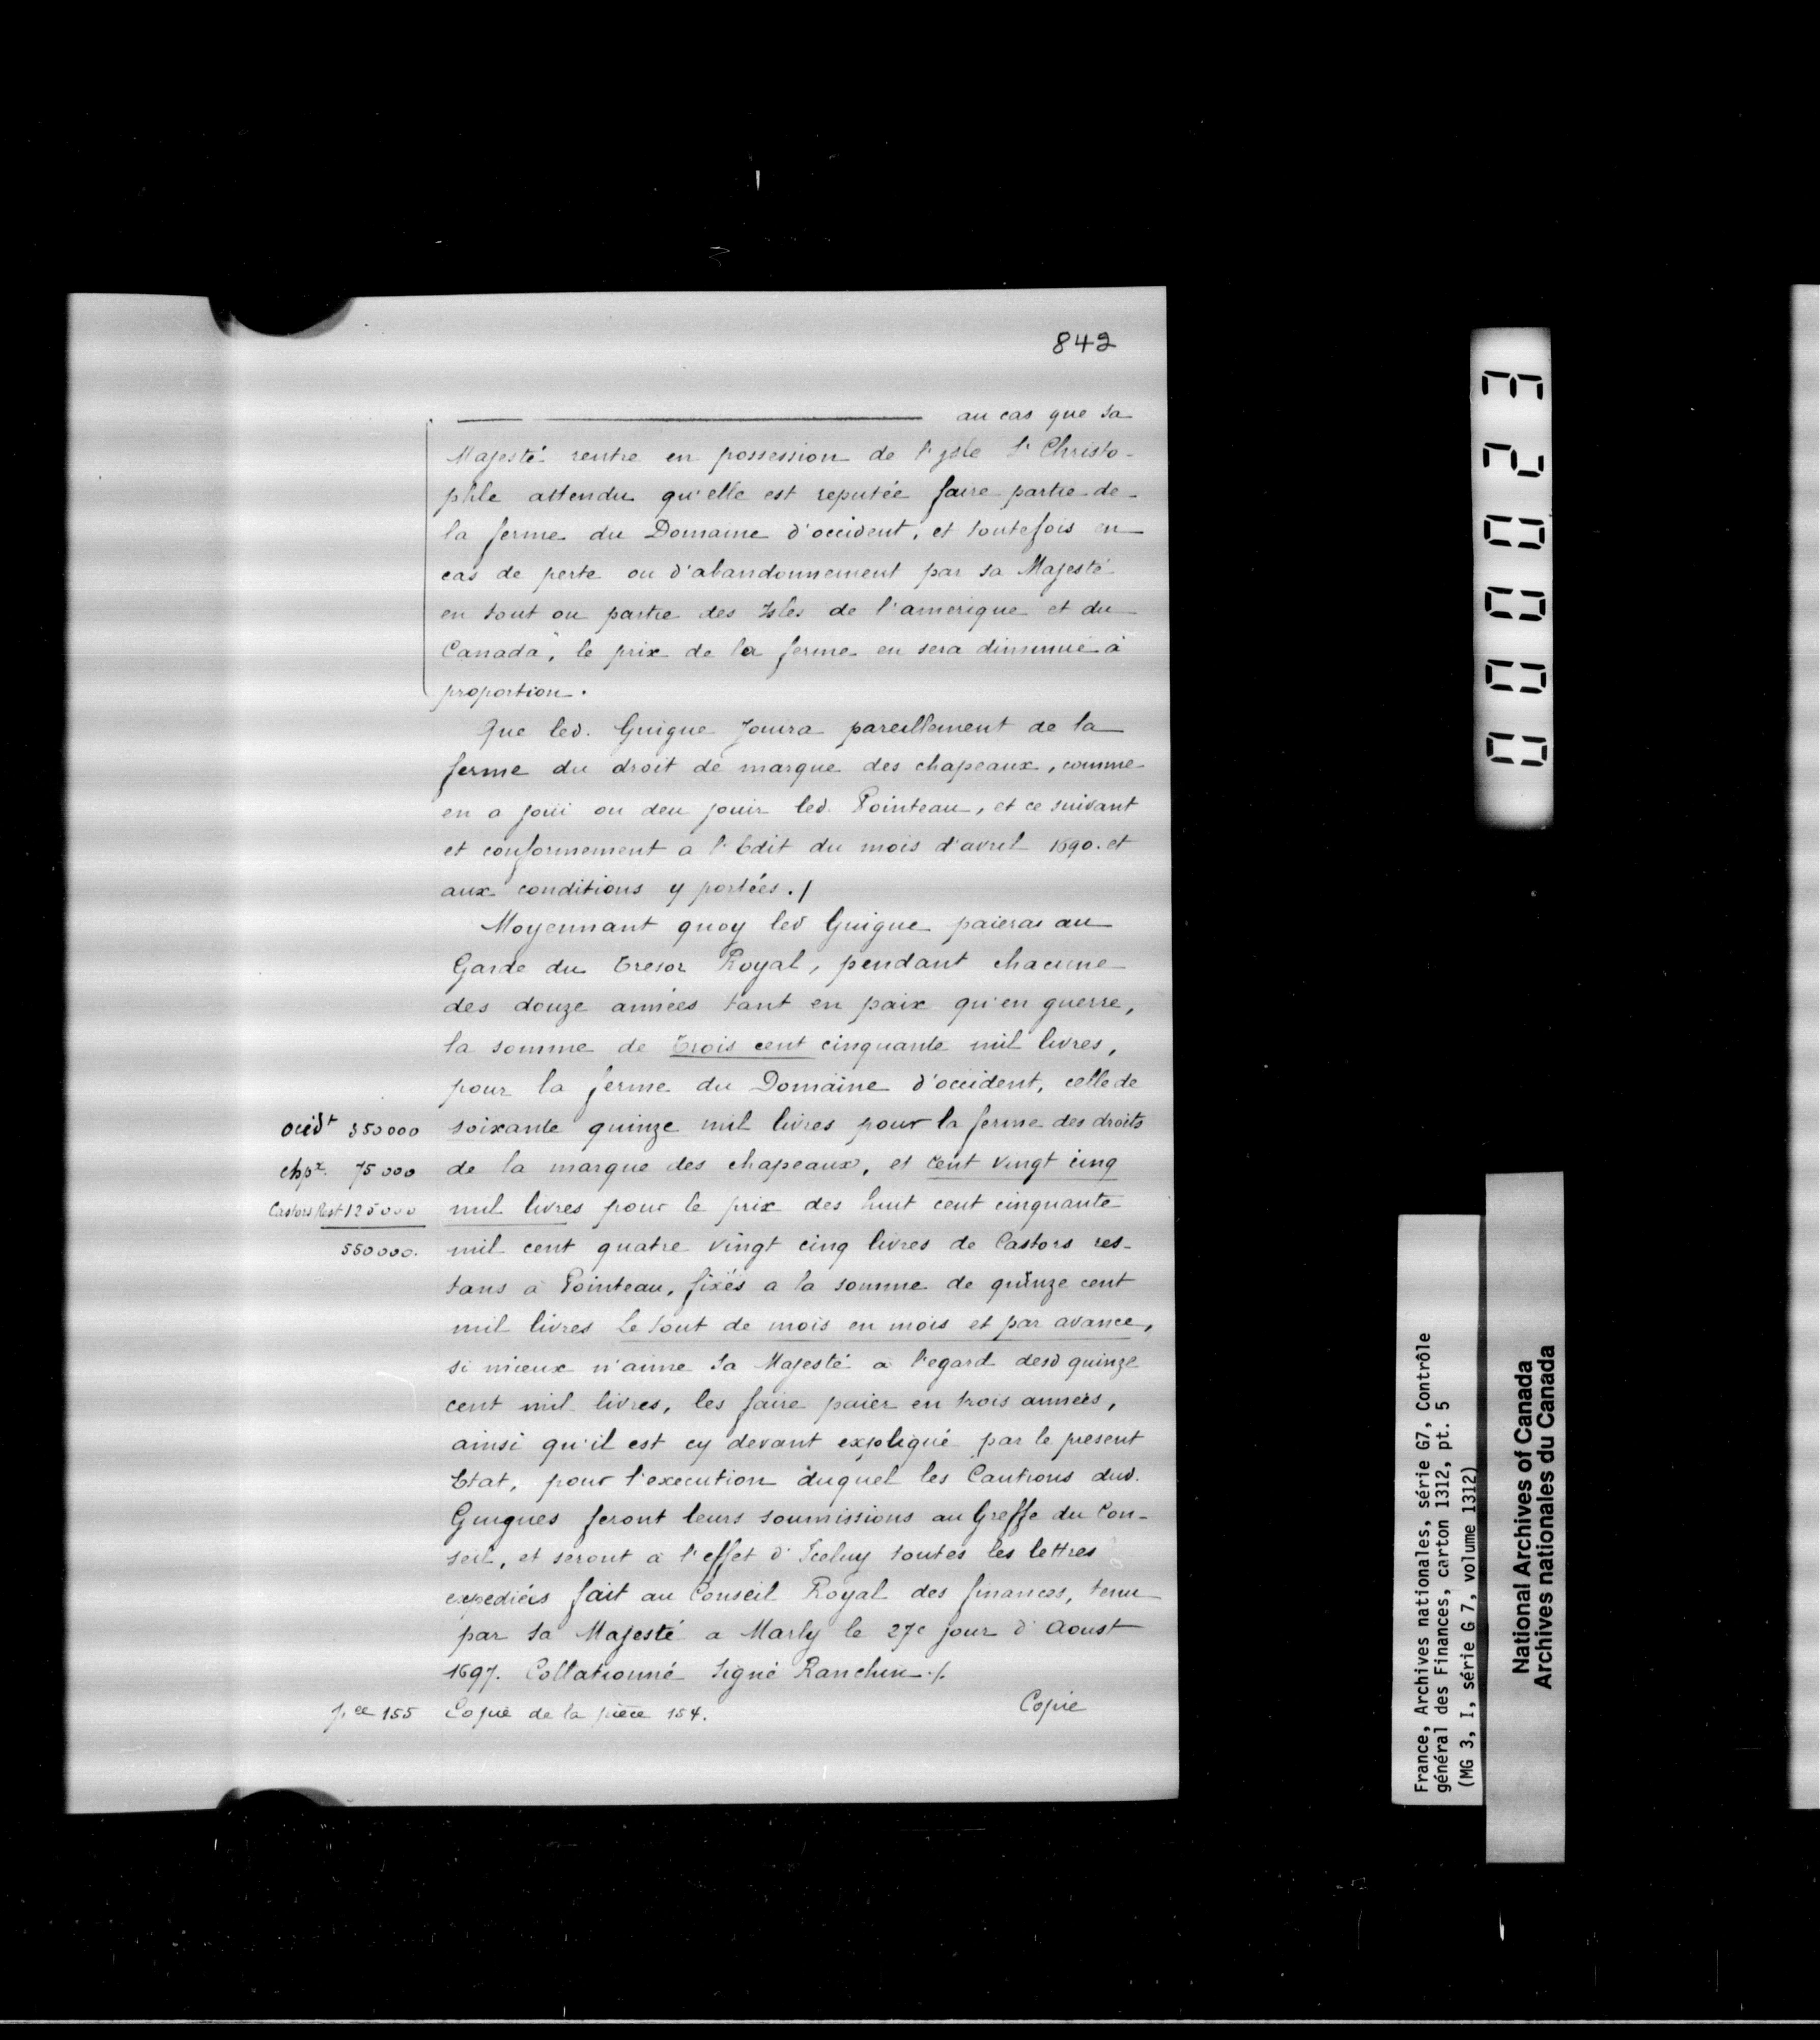 842
au cas que sa
Majesté rentre en possession de l'ysle St Christo-
phle attendu qu'elle est reputée faire partie de
la ferme du Domaine d'occident, et toutefois en
cas de perte ou d'abandonnement par sa Majesté
en tout ou partie des Isles de l'amerique et du
Canada, le prix de la ferme en sera diminué à
proportion.
Que led. Guigue Jouira pareillement de la
ferme du droit de marque des chapeaux, comme
en a joui ou deu jouir led. Pointeau, et ce suivant
et conformement a l'Edit du mois d'avril 1690. et
aux conditions y portées ./
Moyennant quoy led Guigue paiera au
Garde du Tresor Royal, pendant chacune
des douze années tant en paix qu'en guerre,
la somme de Trois cent cinquante mil livres,
pour la ferme du Domaine d'occident, celle de
occidt 350000 soixante quinze mil livres pour la ferme des droits
chpx. 75000 de la marque des chapeaux, et cent vingt cinq
Castors Rest 125000 mil livres pour le prix des huit cent cinquante
550000. mil cent quatre vingt cinq livres de Castors res-
tans à Pointeau, fixés a la somme de quinze cent
mil livres Le tout de mois en mois et par avance,
si mieux n'aime Sa Majesté a l'egard desd quinze
cent mil livres, les faire paier en trois années,
ainsi qu'il est cy devant expliqué par le present
Etat, pour l'execution duquel les Cautions dud.
Guigues feront leurs soumissions au Greffe du Con-
seil, et seront à l'effet d'Iceluy toutes les lettres
expediées fait au Conseil Royal des finances, tenu
par Sa Majesté a Marly le 27e jour d'Aoust
1697. Collationné Signé Ranchin ./.
pce 155 Copie de la pièce 154. Copie
000023
France, Archives nationales, série G7, Contrôle
général des Finances, carton 1312, pt. 5
(MG 3, I, série G 7, volume 1312)
National Archives of Canada
Archives nationales du Canada